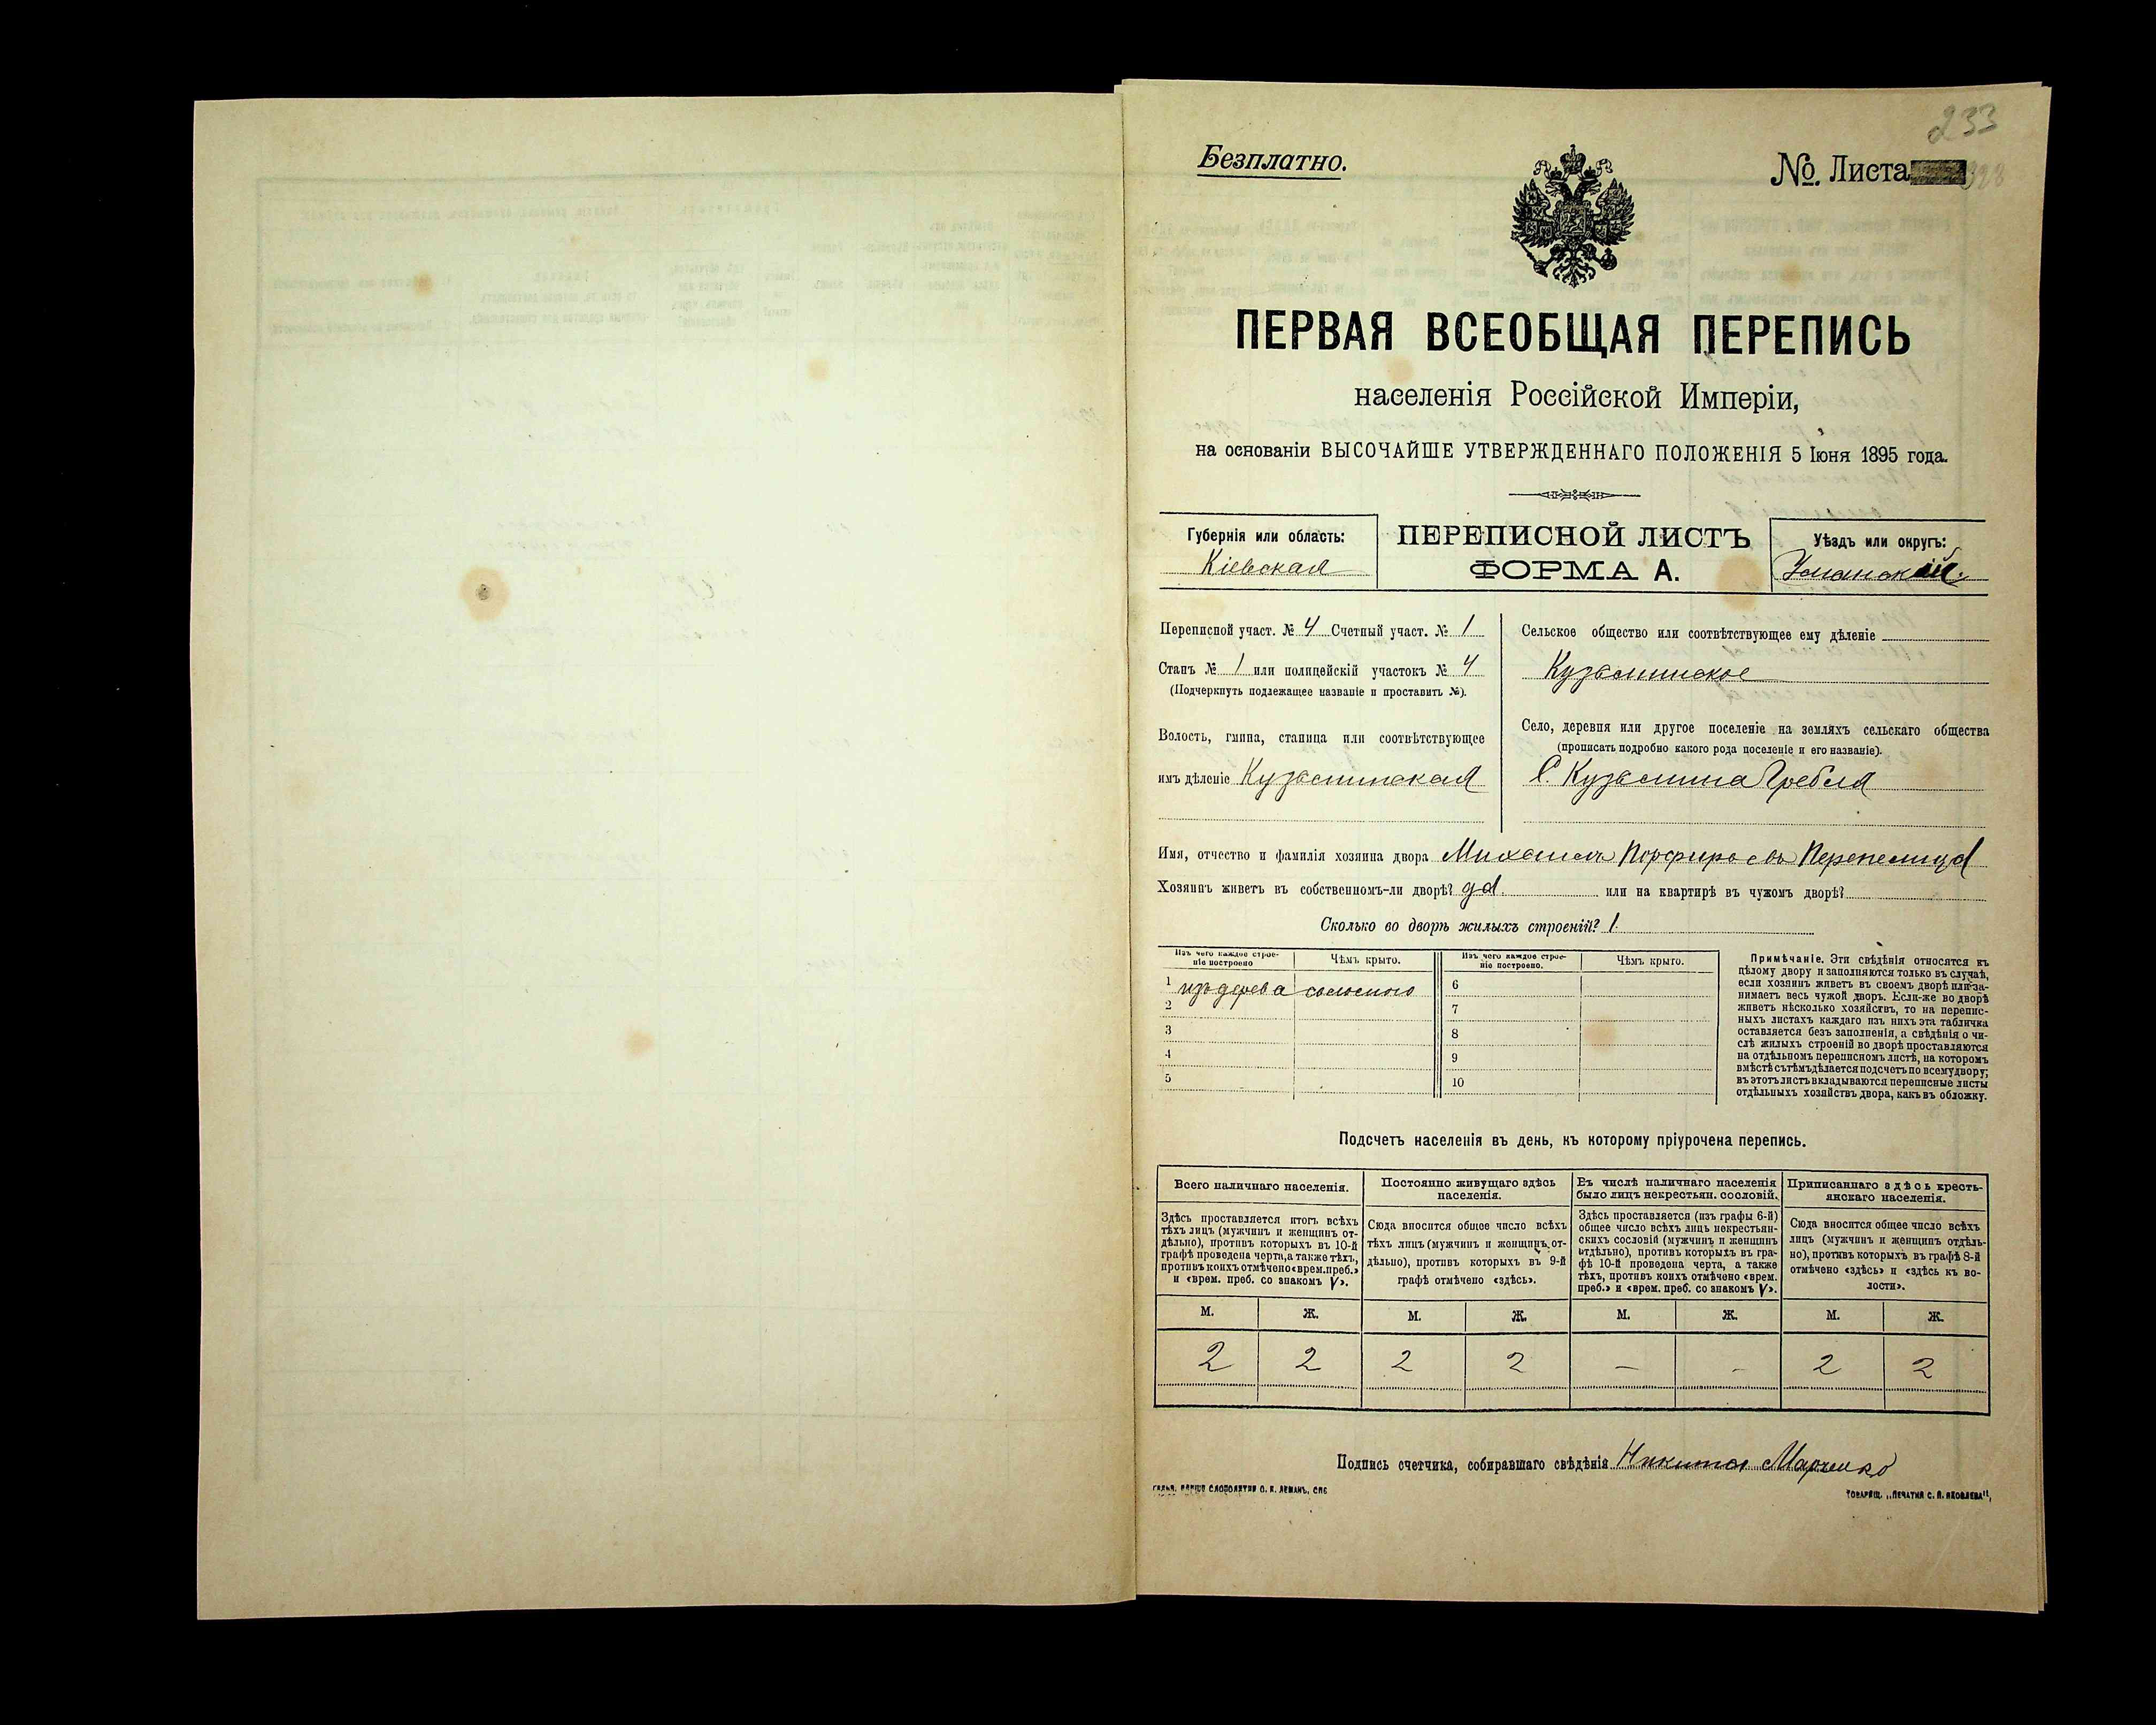 233
Безплатно.
№. Листа 328
ПЕРВАЯ ВСЕОБЩАЯ ПЕРЕПИСЬ
населенія Россійской Имперіи,
на основаніи ВЫСОЧАЙШЕ УТВЕРЖДЕННАГО ПОЛОЖЕНІЯ 5 Іюня 1895 года.
Губернія или область:
Кіевская
ПЕРЕПИСНОЙ ЛИСТЪ
ФОРМА А.
Уѣздъ или округъ:
Уманскій.
Переписной участ. № 4 Счетный участ. № 1
Станъ № 1 или полицейскій участокъ № 4
(Подчеркнуть подлежащее названіе и проставить №).
Волость, гмина, станица или соотвѣтствующее
имъ дѣленіе Кузьминская
Сельское общество или соотвѣтствующее ему дѣленіе
Кузьминское
Село, деревня или другое поселеніе на земляхъ сельскаго общества
(прописать подробно какого рода поселеніе и его названіе).
С. Кузьмина Гребля
Имя, отчество и фамилія хозяина двора Михаилъ Порфирьевъ Перепелица
Хозяинъ живетъ въ собственномъ-ли дворѣ? да или на квартирѣ въ чужомъ дворѣ?
Сколько во дворѣ жилыхъ строеній? 1.
Изъ чего каждое строе-
ніе построено
Чѣмъ крыто.
1 изъ дерева соломою
2
3
4
5
Изъ чего каждое строе-
ніе построено.
Чѣмъ крыто.
6
7
8
9
10
Примѣчаніе. Эти свѣдѣнія относятся къ
цѣлому двору и заполняются только въ случаѣ,
если хозяинъ живетъ въ своемъ дворѣ или за-
нимаетъ весь чужой дворъ. Если-же во дворѣ
живетъ нѣсколько хозяйствъ, то на перепис-
ныхъ листахъ каждаго изъ нихъ эта табличка
оставляется безъ заполненія, а свѣдѣнія о чи-
слѣ жилыхъ строеній во дворѣ проставляются
на отдѣльномъ переписномъ листѣ, на которомъ
вмѣстѣ съ тѣмъ дѣлается подсчетъ по всему двору;
въ этотъ листъ вкладываются переписные листы
отдѣльныхъ хозяйствъ двора, какъ въ обложку.
Подсчетъ населенія въ день, къ которому пріурочена перепись.
Всего наличнаго населенія.
Здѣсь проставляется итогъ всѣхъ
тѣхъ лицъ (мужчинъ и женщинъ от-
дѣльно), противъ которыхъ въ 10-й
графѣ проведена черта, а также тѣхъ,
противъ коихъ отмѣчено «врем. преб.»
и «врем. преб. со знакомъ V».
Постоянно живущаго здѣсь
населенія.
Сюда вносится общее число всѣхъ
тѣхъ лицъ (мужчинъ и женщинъ от-
дѣльно), противъ которыхъ въ 9-й
графѣ отмѣчено «здѣсь».
Въ числѣ наличнаго населенія
было лицъ некрестьян. сословій.
Здѣсь проставляется (изъ графы 6-й)
общее число всѣхъ лицъ некрестьян-
скихъ сословій (мужчинъ и женщинъ
отдѣльно), противъ которыхъ въ гра-
фѣ 10-й проведена черта, а также
тѣхъ, противъ коихъ отмѣчено «врем.
преб.» и «врем. преб. со знакомъ V».
Приписаннаго здѣсь кресть-
янскаго населенія.
Сюда вносится общее число всѣхъ
лицъ (мужчинъ и женщинъ отдѣль-
но), противъ которыхъ въ графѣ 8-й
отмѣчено «здѣсь» и «здѣсь къ во-
лости».
М. Ж. М. Ж. М. Ж. М. Ж.
2 2 2 2 – – 2 2
Подпись счетчика, собиравшаго свѣдѣнія Никита Марченко
СЛОВОЛИТНИ О. И. ЛЕМАНЪ, СПБ
ТОВАРИЩ. „ПЕЧАТНЯ С. П. ЯКОВЛЕВА“,